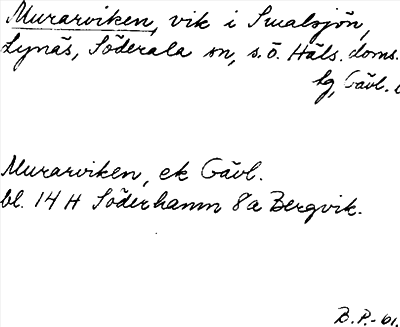 Murarviken, vik i Smalsjön,
Lynäs, Söderala sn, s.ö. Häls. doms.
lg, Gävl.
Murarviken, ek Gävl.
bl. 14 H Söderhamn 8a Bergvik.
B.P.-61.